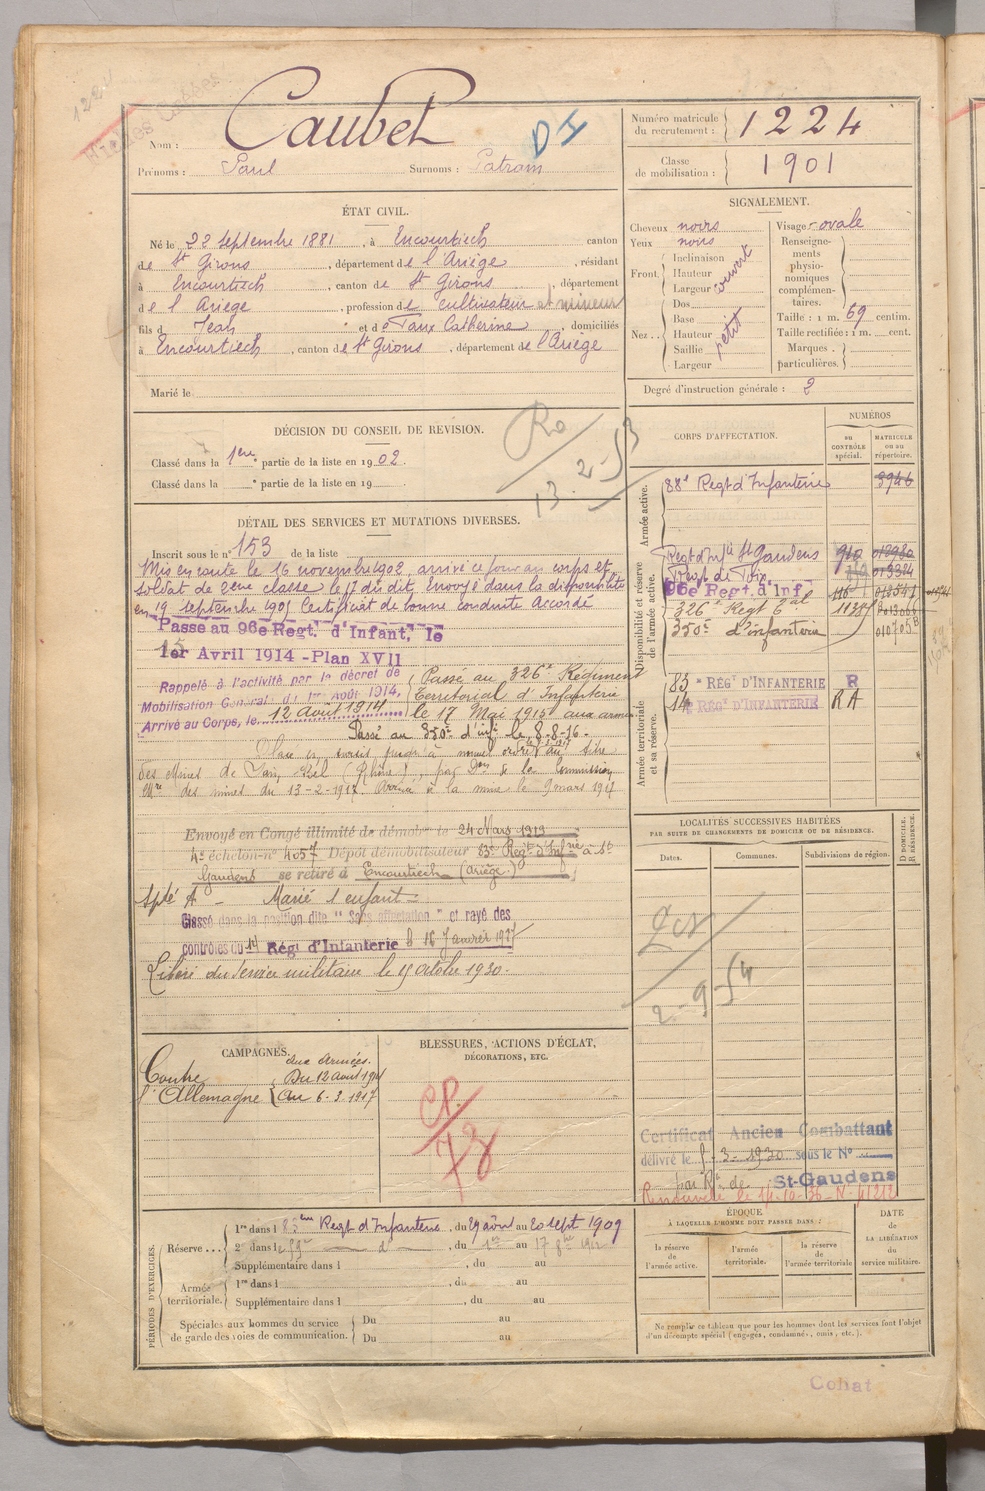 1224
Nom : Caubet
D I
Prénoms : Paul Surnoms : Patram
Numéro matricule du recrutement : 1224
Classe de mobilisation : 1901
ÉTAT CIVIL.
Né le 22 Septembre 1881, à Encourtiech canton
de St Girons, département de l'Ariège, résidant
à Encourtiech, canton de St Girons, département
de l'Ariège, profession de cultivateur et mineur
fils d Jean et de Taux Catherine, domiciliés
à Encourtiech, canton de St Girons, département de l'Ariège
Marié le
SIGNALEMENT.
Cheveux noirs
Yeux noirs
Front. Inclinaison
Hauteur
Largeur couvert
Nez.. Dos
Base
Hauteur petit
Saillie
Largeur
Visage ovale
Renseignements physionomiques complémentaires.
Taille : 1 m. 69 centim.
Taille rectifiée : 1 m. cent.
Marques particulières.
Degré d'instruction générale : 2
DÉCISION DU CONSEIL DE RÉVISION.
Classé dans la 1ère partie de la liste en 1902.
Classé dans la e partie de la liste en 19
13.2-53
DÉTAIL DES SERVICES ET MUTATIONS DIVERSES.
Inscrit sous le n° 153 de la liste
Mis en route le 16 novembre 1902, arrivé ce jour au corps et
soldat de 2ème classe le 17 du dit. Envoyé dans la disponibilité
en 19 Septembre 1905 Certificat de bonne conduite Accordé
Passé au 96e Regt. d'Infant. le
1er Avril 1914 - Plan XVII
Rappelé à l'activité par le décret de
Mobilisation Général du 1er Août 1914.
Arrivé au Corps, le 12 août 1914
Passé au 326e Régiment
Territorial d'Infanterie
le 17 Mai 1915 aux armées
Passé au 350e d'infie le 8-8-16.
des Mines de Sain Bel (Rhône), par Don de la Commission
des mines du 13-2-1917. Arrivé à la mine le 9 mars 1917
Envoyé en Congé illimité de démobon le 24 Mars 1919
4e échelon - n° 4057 Dépôt démobilisateur 83e Regt d'Infrie à St
Gaudens se retire à Encourtiech (Ariège.)
Marié 1 enfant
Classé dans la position dite "Sans affectation" et rayé des
contrôles du 14 Régt d'Infanterie le 16 Janvier 1927
Libéré du Service militaire le 15 octobre 1930.
CORPS D'AFFECTATION.
NUMÉROS
au CONTRÔLE spécial.
MATRICULE ou au répertoire.
Armée active.
88e Regt d'Infanterie 3946
Disponibilité et réserve de l'armée active.
Regt d'Infie St Gaudens
96e Regt. d'Inf
326e Regt
350e d'infanterie
Armée territoriale et sa réserve.
83 e RÉGt D'INFANTERIE R
14 e RÉGt D'INFANTERIE RA
LOCALITÉS SUCCESSIVES HABITÉES
PAR SUITE DE CHANGEMENTS DE DOMICILE OU DE RÉSIDENCE.
Dates.
Communes.
Subdivisions de région.
D DOMICILE. R RÉSIDENCE.
2-9-54
CAMPAGNES.
Contre l'Allemagne
aux Armées.
Du 12 août 1914
au 6-3-1917
BLESSURES, ACTIONS D'ÉCLAT,
DÉCORATIONS, ETC.
Certificat Ancien Combattant
délivré le -3-1930 sous le N°
par Rt de St-Gaudens
Renouvelé le 14-10-36-N°
PÉRIODES D'EXERCICES.
Réserve... 1re dans l 83ème Regt d'Infanterie, du 29 août au 20 sept 1909
2e dans l e 59me d°, du 1er au 17 8bre 1912
Supplémentaire dans l , du au
Armée territoriale. 1re dans l , du au
Supplémentaire dans l , du au
Spéciales aux hommes du service de garde des voies de communication. Du au
Du au
ÉPOQUE
À LAQUELLE L'HOMME DOIT PASSER DANS :
la réserve de l'armée active.
l'armée territoriale.
la réserve de l'armée territoriale
DATE de LA LIBÉRATION du service militaire.
Ne remplir ce tableau que pour les hommes dont les services font l'objet
d'un décompte spécial (engagés, condamnés, omis, etc.).
Cohat